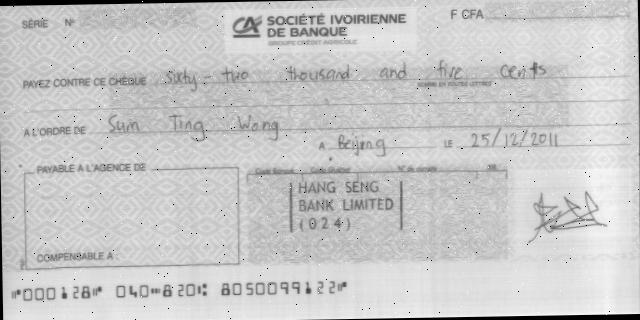 SÉRIE N° SOCIÉTÉ IVOIRIENNE F CFA
CA DE BANQUE
GROUPE CRÉDIT AGRICOLE
PAYEZ CONTRE CE CHÈQUE Sixty-two thousand and five cents
SOMME EN TOUTES LETTRES
A L'ORDRE DE Sum Ting Wong
A Beijing LE 25/12/2011
PAYABLE À L'AGENCE DE
HANG SENG
BANK LIMITED
(024)
COMPENSABLE A :
⑈000128⑈ 040⑉820⑆ 8050099122⑈